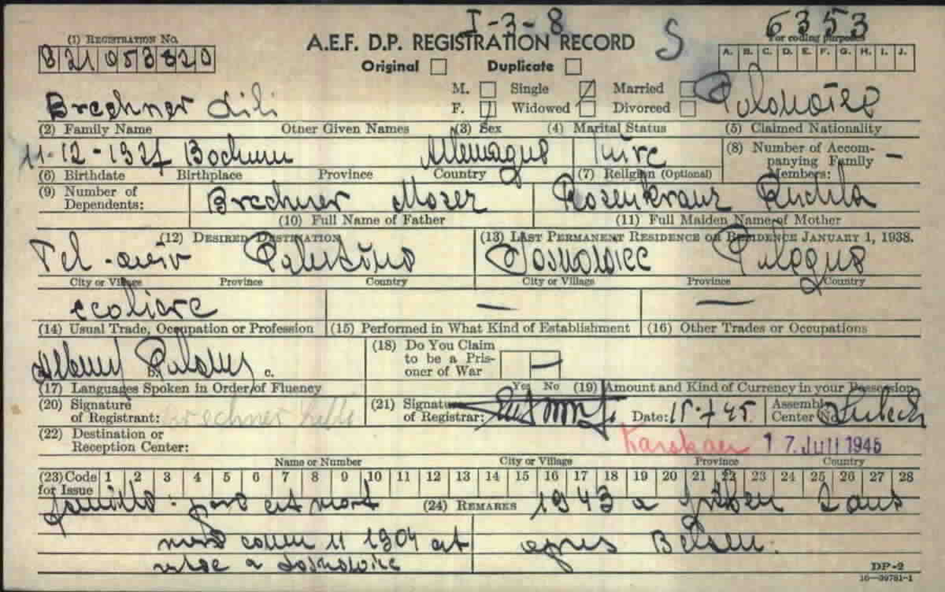 I-3-8
S 6353
(1) REGISTRATION NO. A.E.F. D.P. REGISTRATION RECORD For coding purposes
B21053320 Original Duplicate A. B. C. D. E. F. G. H. I. J.
M. Single Married
Brechner Lili F. Widowed Divorced Polonaise
(2) Family Name Other Given Names (3) Sex (4) Marital Status (5) Claimed Nationality
11-12-1927 Bochum Allemagne Juive (8) Number of Accompanying Family Members: —
(6) Birthdate Birthplace Province Country (7) Religion (Optional)
(9) Number of Dependents: Brechner Mozer Rosenkranz Ruchla
(10) Full Name of Father (11) Full Maiden Name of Mother
(12) DESIRED DESTINATION (13) LAST PERMANENT RESIDENCE OR RESIDENCE JANUARY 1, 1938.
Tel-aviv Palestine Sosnowice Pologne
City or Village Province Country City or Village Province Country
ecoliere — —
(14) Usual Trade, Occupation or Profession (15) Performed in What Kind of Establishment (16) Other Trades or Occupations
b. c. (18) Do You Claim to be a Prisoner of War —
(17) Languages Spoken in Order of Fluency Yes No (19) Amount and Kind of Currency in your Possession
(20) Signature of Registrant: Brechner Lilli (21) Signature of Registrar: Date: 15-7-45 Assembly Center No. Lubeck
(22) Destination or Reception Center: 17. Juli 1945
Name or Number City or Village Province Country
(23) Code for Issue 1 2 3 4 5 6 7 8 9 10 11 12 13 14 15 16 17 18 19 20 21 22 23 24 25 26 27 28
famille: pere est mort (24) REMARKS 1943 a 2 ans
1904 et apres Belsen.
a Sosnowice
DP-2
16—39781-1